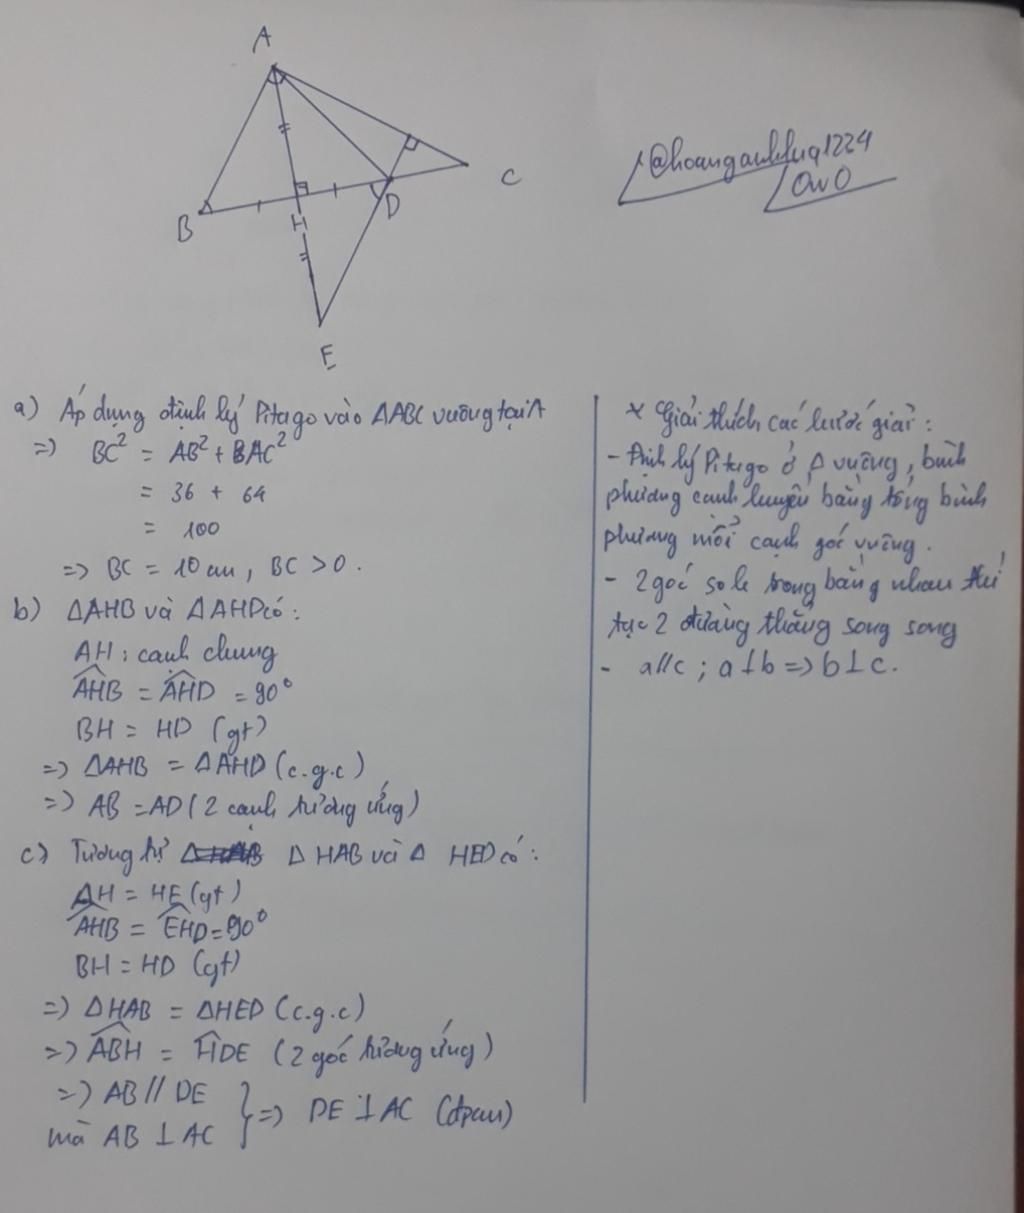 A
B
H
D
C
E
@hoanganhluq1224
OwO
a) Áp dụng định lý Pitago vào ΔABC vuông tại A
=> BC² = AB² + AC²
= 36 + 64
= 100
=> BC = 10 cm, BC > 0.
b) ΔAHB và ΔAHD có:
AH: cạnh chung
AHB = AHD = 90°
BH = HD (gt)
=> ΔAHB = ΔAHD (c.g.c)
=> AB = AD (2 cạnh tương ứng)
c) Tương tự Δ HAB và Δ HED có:
AH = HE (gt)
AHB = EHD = 90°
BH = HD (gt)
=> ΔHAB = ΔHED (c.g.c)
=> ABH = HDE (2 góc tương ứng)
=> AB // DE
mà AB ⊥ AC } => DE ⊥ AC (đpcm)
* Giải thích các bước giải:
- Định lý Pitago ở Δ vuông, bình
phương cạnh huyền bằng tổng bình
phương mỗi cạnh góc vuông.
- 2 góc so le trong bằng nhau thì
2 đường thẳng song song
- a//c ; a⊥b => b⊥c.